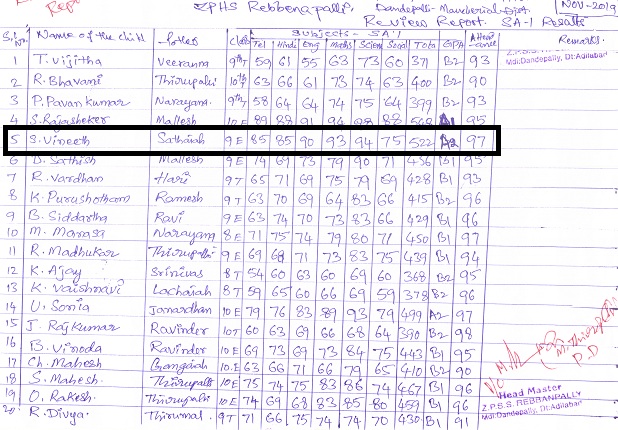 ZPHS Rebbenapalli, Dandepalli - Mancherial - Dist. NOV-2019
Review Report. SA-1 Results
Subjects - SA-1
S.No Name of the Child Father Class Tel Hindi Eng Maths Scien Social Total GPA Attendance Remarks.
1 T. Vijitha Veeranna 9th T 59 61 55 63 73 60 371 B2 93
Z.P.S.S. REBBANPALLY
Mdl:Dandepally, Dt:Adilabad
2 R. Bhavani Thirupathi 10th T 63 66 61 73 74 63 400 B2 90
3 P. Pavan kumar Narayana 9th T 58 64 64 74 75 64 399 B2 93
4 S. Rajasheker Mallesh 10 E 89 88 91 94 88 A1 95
5 S. Vineeth Sathaiah 9 E 85 85 90 93 94 75 522 A2 97
6 D. Sathish Mallesh 9 E 74 69 73 79 90 71 456 B1 95
7 R. Vardhan Hari 9 T 65 71 69 75 79 69 428 B1 93
8 K. Purushotham Ramesh 9 T 63 70 69 64 83 66 415 B2 96
9 B. Siddartha Ravi 9 E 63 74 70 73 83 66 429 B1 96
10 M. Manasa Narayana 8 E 71 75 74 79 80 71 450 B1 97
11 R. Madhukar Thirupathi 9 E 69 68 71 73 83 75 439 B1 94
12 K. Ajay Srinivas 8 T 54 60 63 60 69 60 368 B2 95
13 K. Vaishnavi Lachaiah 8 T 59 65 60 66 69 59 378 B2 96
14 U. Sonia Janardhan 10 E 79 76 83 89 93 79 499 A2 97
15 J. Rajkumar Ravinder 10 T 60 63 69 66 68 64 390 B2 98
16 B. Vinoda Ravinder 10 E 73 69 73 84 75 443 B1 95
17 Ch. Mahesh Gangaiah 10 E 63 66 71 66 79 65 410 B2 90
18 S. Mahesh Thirupathi 10 E 75 74 75 83 86 74 467 B1 96
19 O. Rakesh Thirupathi 10 E 74 69 68 83 85 80 459 B1 96
20 R. Divya. Thirumal 9 T 71 66 75 74 74 70 430 B1 91
P.D
Head Master
Z.P.S.S. REBBANPALLY
Mdl:Dandepally, Dt:Adilabad